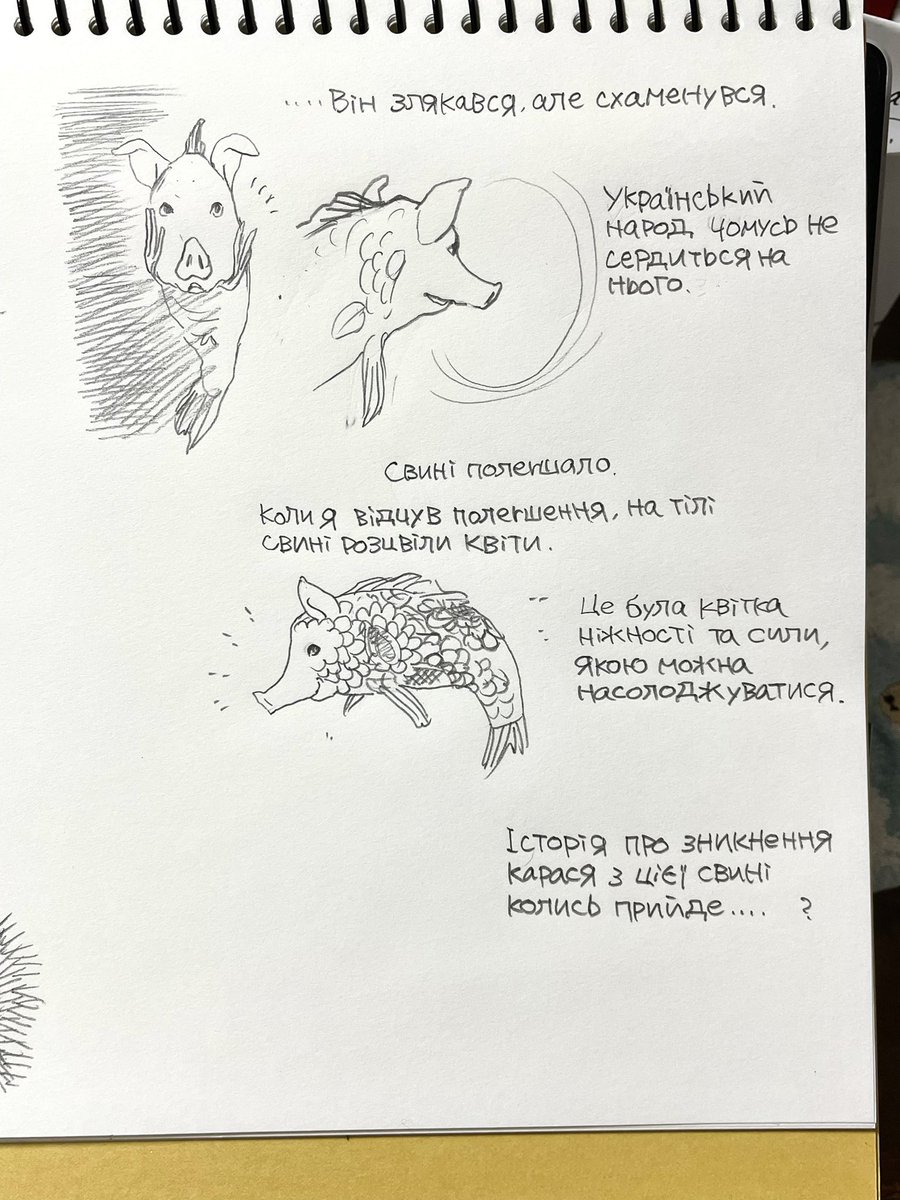 ....Він злякався, але схаменувся.
Український
народ чомусь не
сердиться на
нього.
Свині полегшало.
Коли я відчув полегшення, на тілі
свині розцвіли квіти.
Це була квітка
ніжності та сили,
якою можна
насолоджуватися.
Історія про зникнення
карася з цієї свині
колись прийде.... ?